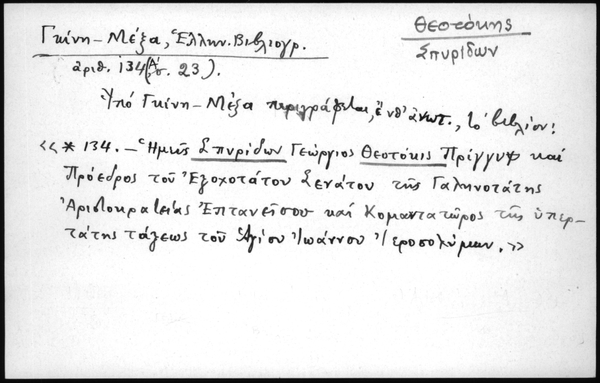 Θεοτόκης
Σπυρίδων
Γκίνη – Μέξα, Ἑλλην. Βιβλιογρ.
ἀριθ. 134 (Α΄, σ. 23).
Ὑπό Γκίνη – Μέξα περιγράφεται, ἔνθ' ἀνωτ., τό βιβλίον:
<< * 134. – Ἡμεῖς Σπυρίδων Γεώργιος Θεοτόκις Πρίγγυψ καί
Πρόεδρος τοῦ Ἐξοχοτάτου Σενάτου τῆς Γαληνοτάτης
Ἀριστοκρατείας Ἑπτανείσου καί Κομαντατῶρος τῆς ὑπερ-
τάτης τάξεως τοῦ Ἁγίου Ἰωάννου Ἱεροσολύμων. >>